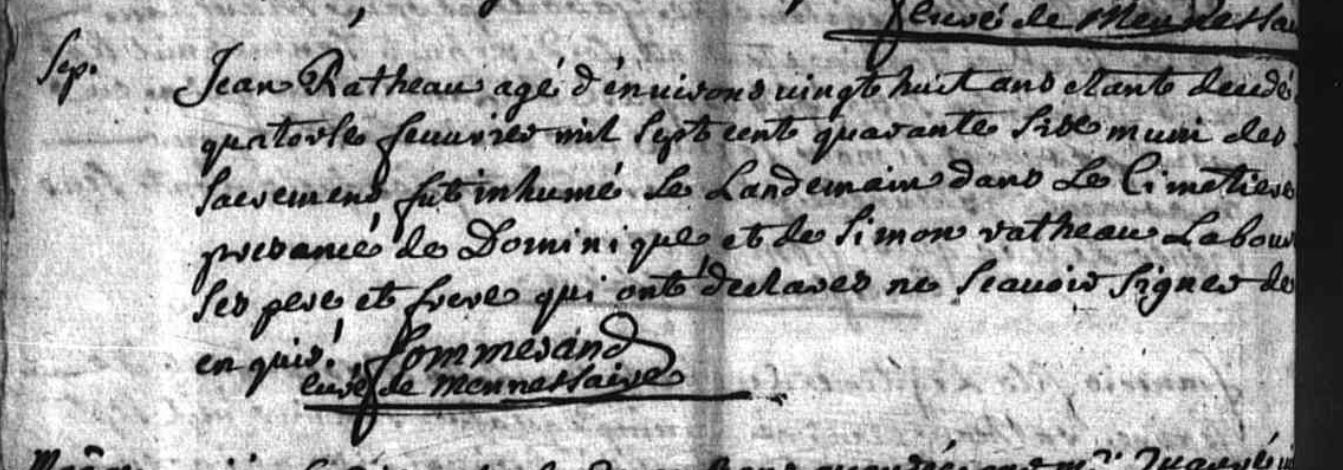 curé de Mennessai
Sep.
Jean Ratheau agé d'énvirons vingt huit ans etante decedé
quatorse fevvrier mil sept cent quarante sixe muni des
sacremens fut inhumé le Landemain dans Le Cimetiere
presance de Dominique et de Simon ratheau Labour
ses pere et frere qui ont declares ne scavoir signer de
en quis. Sommerand
curé de mennessaire